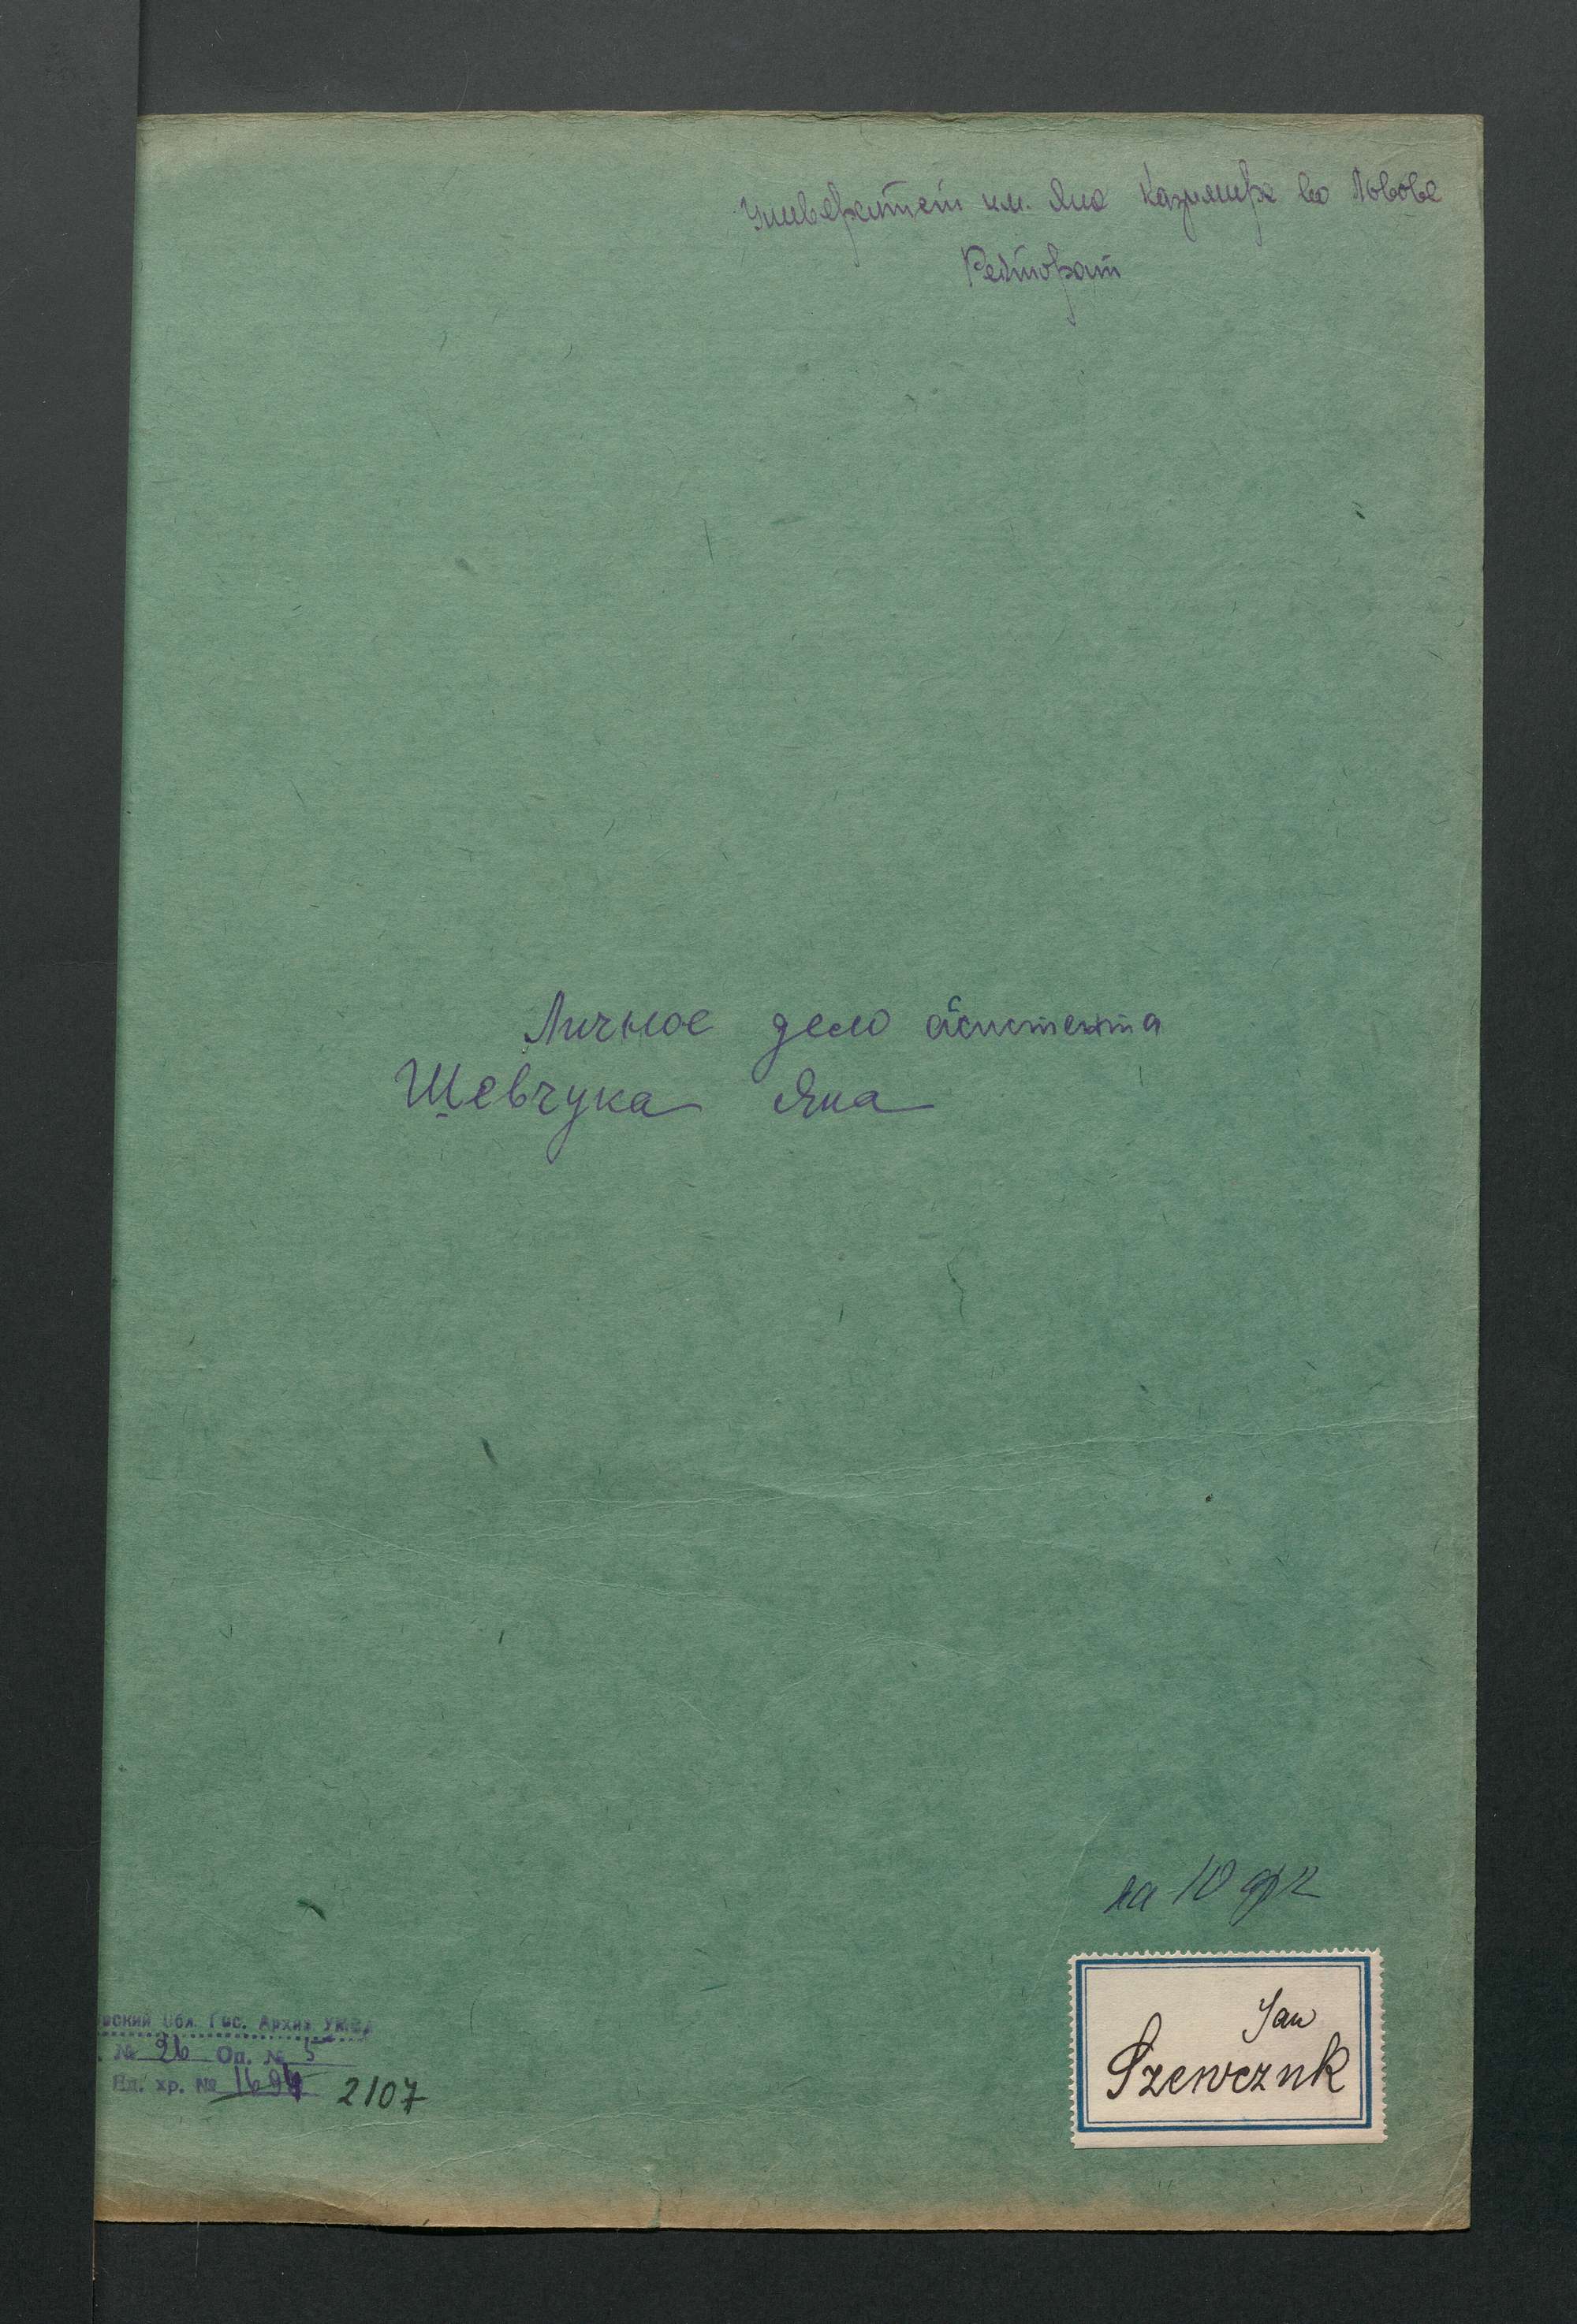 Университет им. Яна Казимира во Львове
Ректорат
Личное дело асистента
Шевчука Яна
на 10
Jan
Szewczuk
вский Обл. Гос. Архив УМВД
№ 26 Оп. № 5
Ед. хр. № 1694 2107